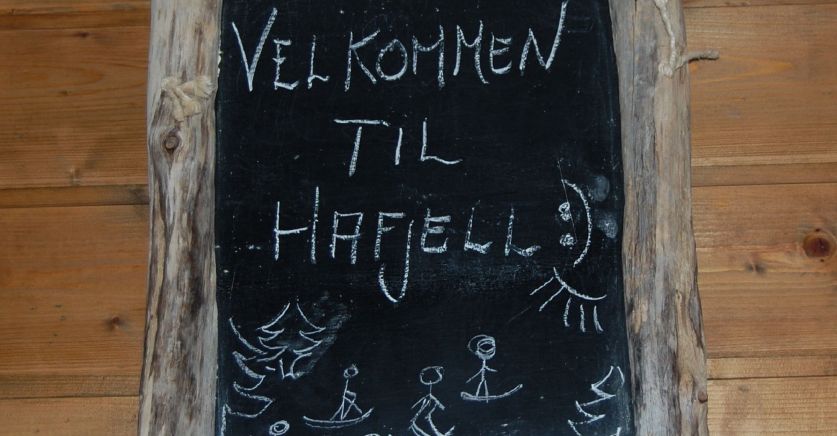 VELKOMMEN
TIL
HAFJELL